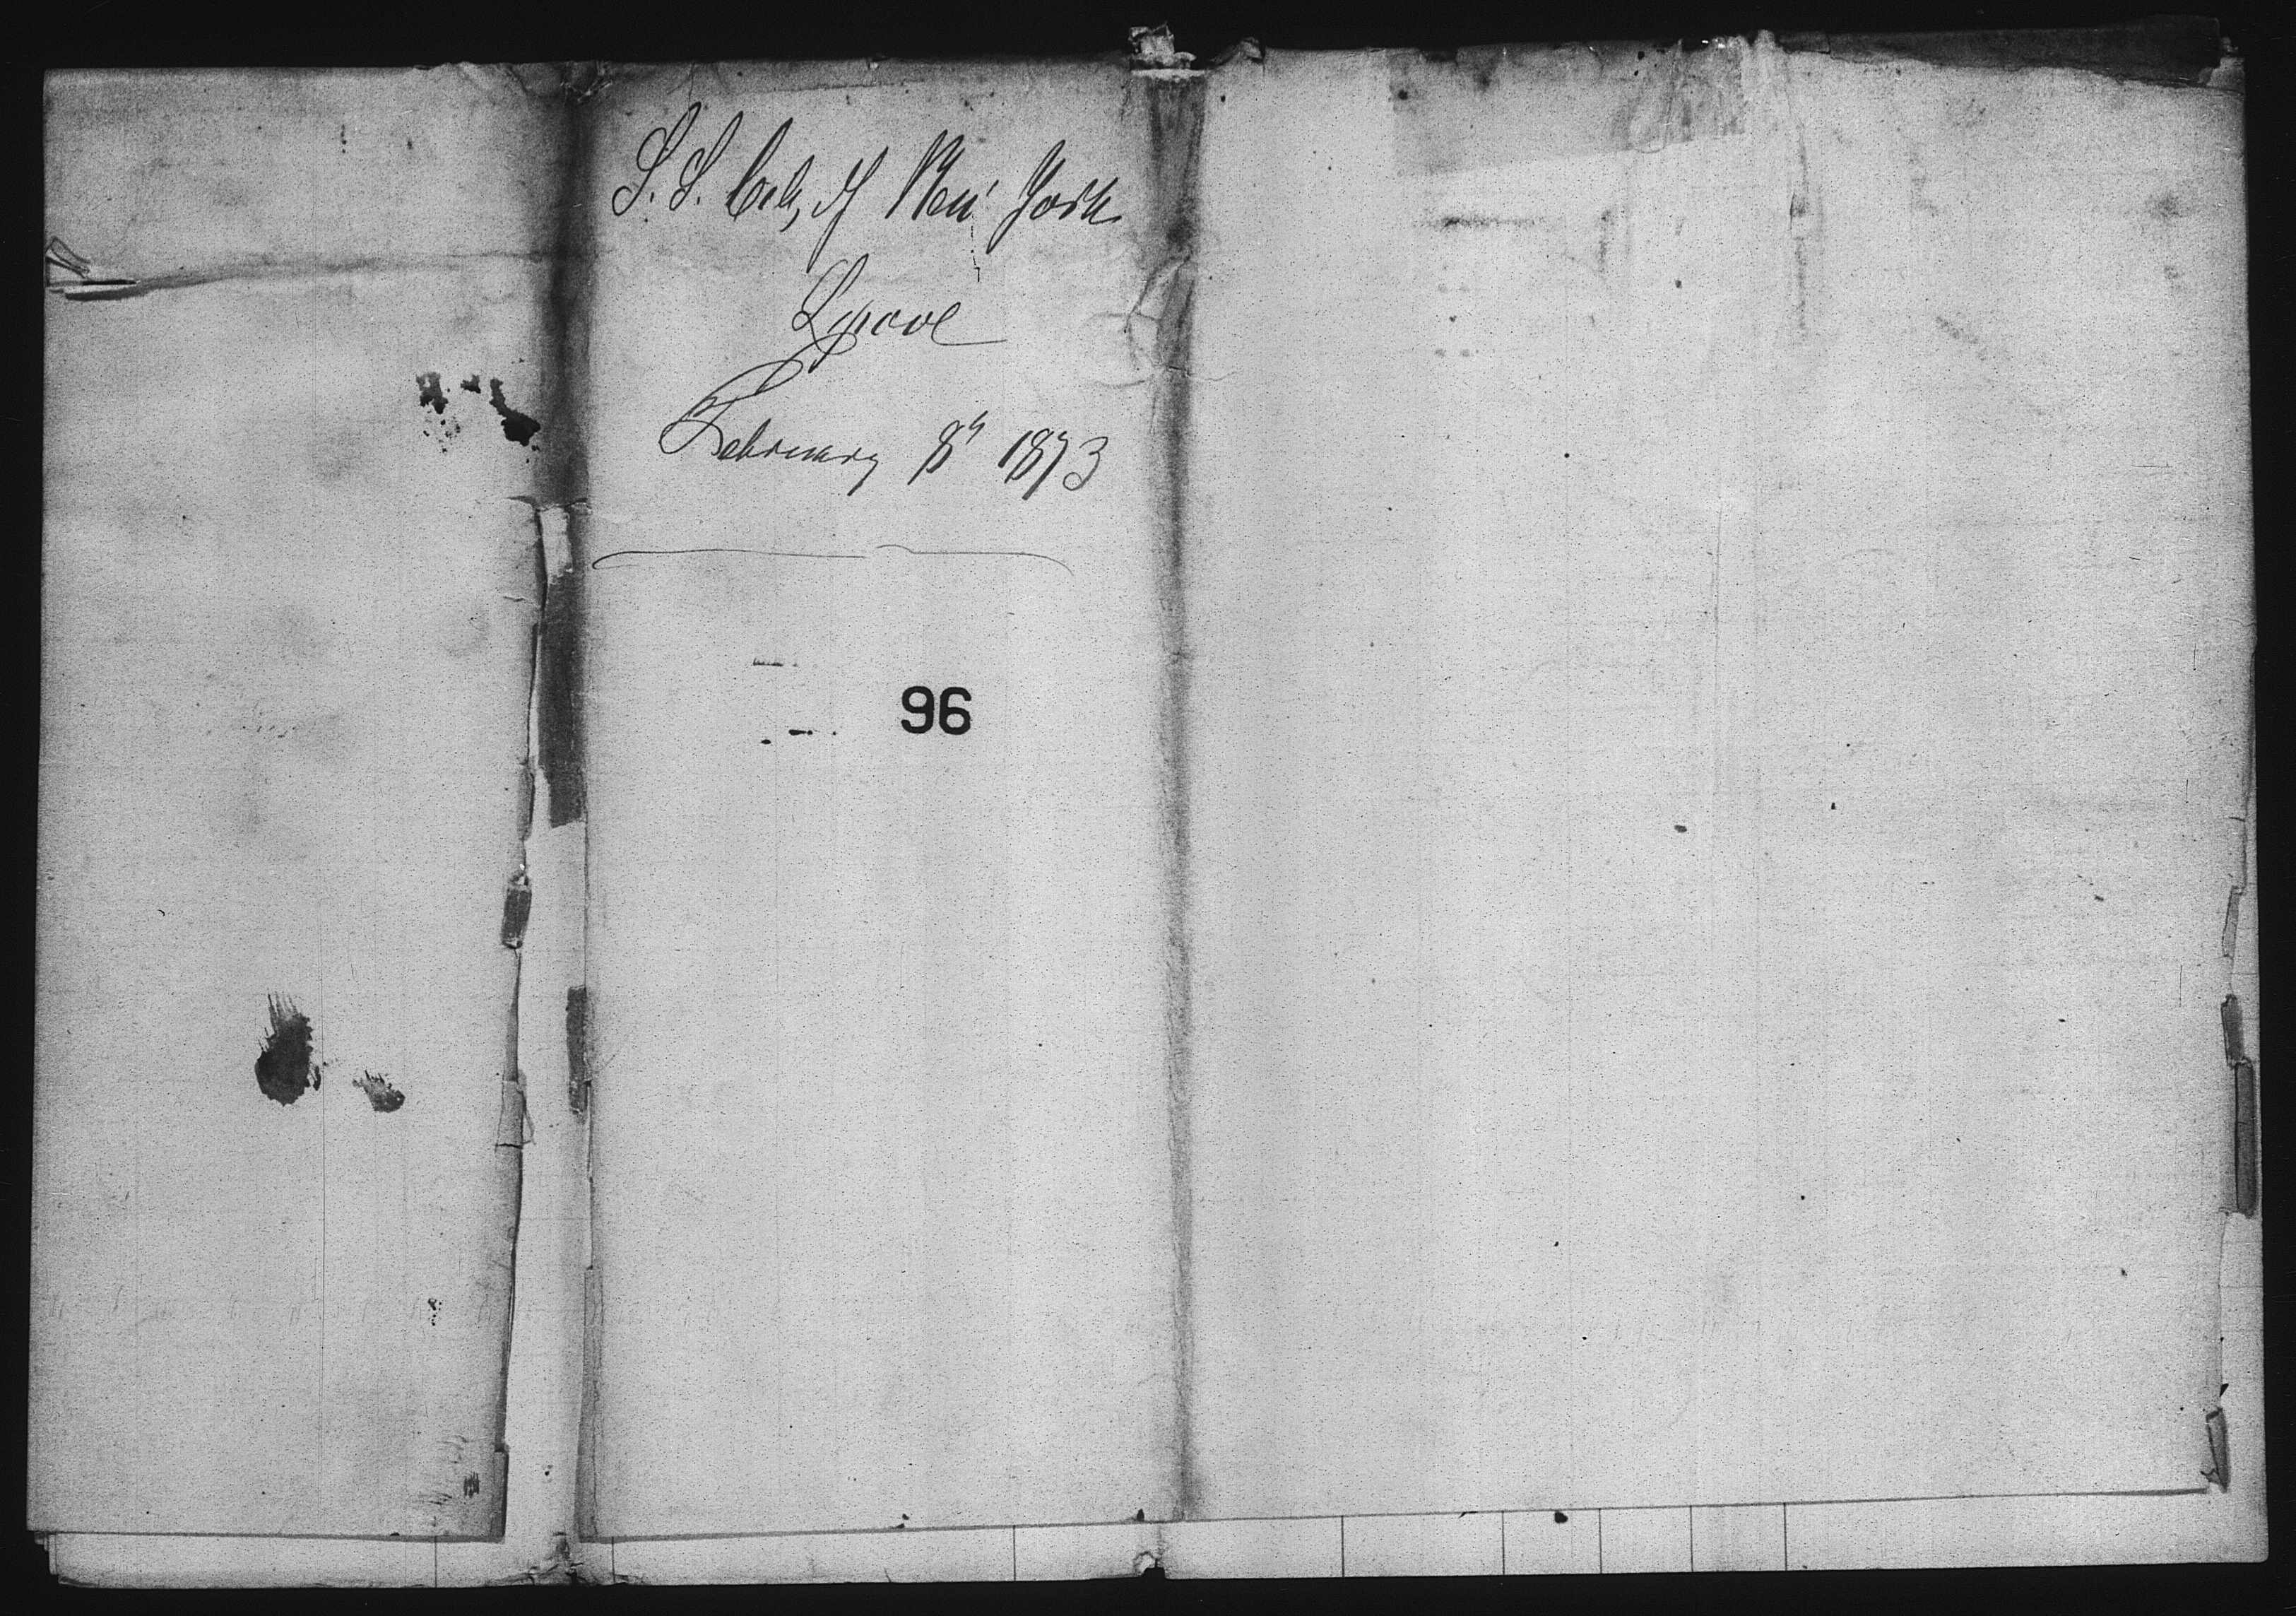 S. S. City of New York
Lpool
February 8" 1873
96